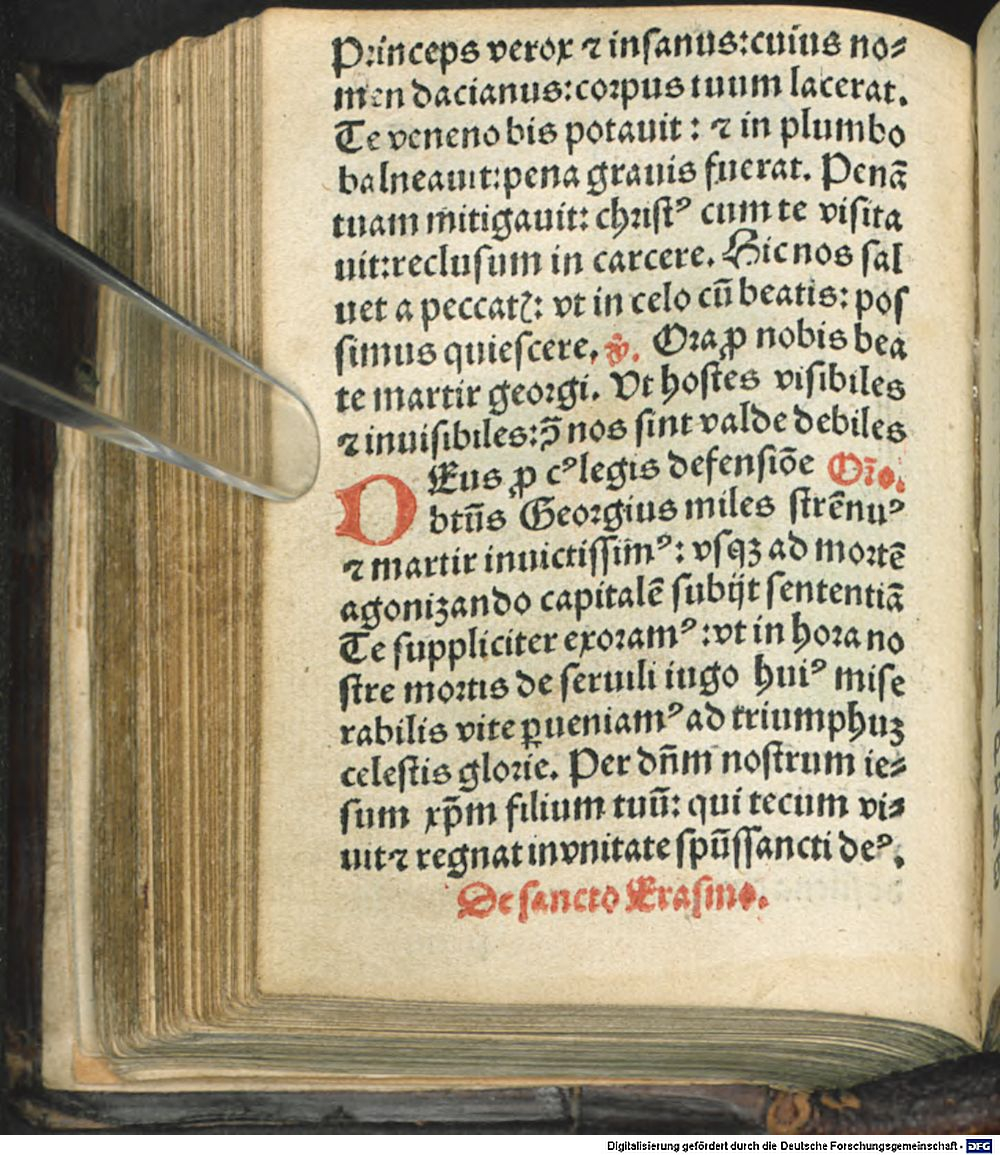 Princeps verox ⁊ insanus: cuius no⸗
men dacianus: corpus tuum lacerat.
Te veneno bis potauit: ⁊ in plumbo
balneauit: pena grauis fuerat. Penã
tuam mitigauit: christꝰ cum te visita
uit: reclusum in carcere. Hic nos sal
uet a peccatꝭ: vt in celo cũ beatis: pos
simus quiescere. ℣. Ora ꝓ nobis bea
te martir georgi. Vt hostes visibiles
⁊ inuisibiles: ↄ̃ nos sint valde debiles
DEus ꝓ cꝰ legis defensiõe Or̃o.
btũs Georgius miles strẽnuꝰ
⁊ martir inuictissimꝰ: vsqꝫ ad mortẽ
agonizando capitalẽ subijt sententiã
Te suppliciter exoramꝰ: vt in hora no
stre mortis de seruili iugo huiꝰ mise
rabilis vite ꝑueniamꝰ ad triumphuꝫ
celestis glorie. Per dñm nostrum ie⸗
sum xp̃m filium tuũ: qui tecum vi⸗
uit ⁊ regnat in vnitate spũssancti deꝰ.
De sancto Erasmo.
Digitalisierung gefördert durch die Deutsche Forschungsgemeinschaft - DFG